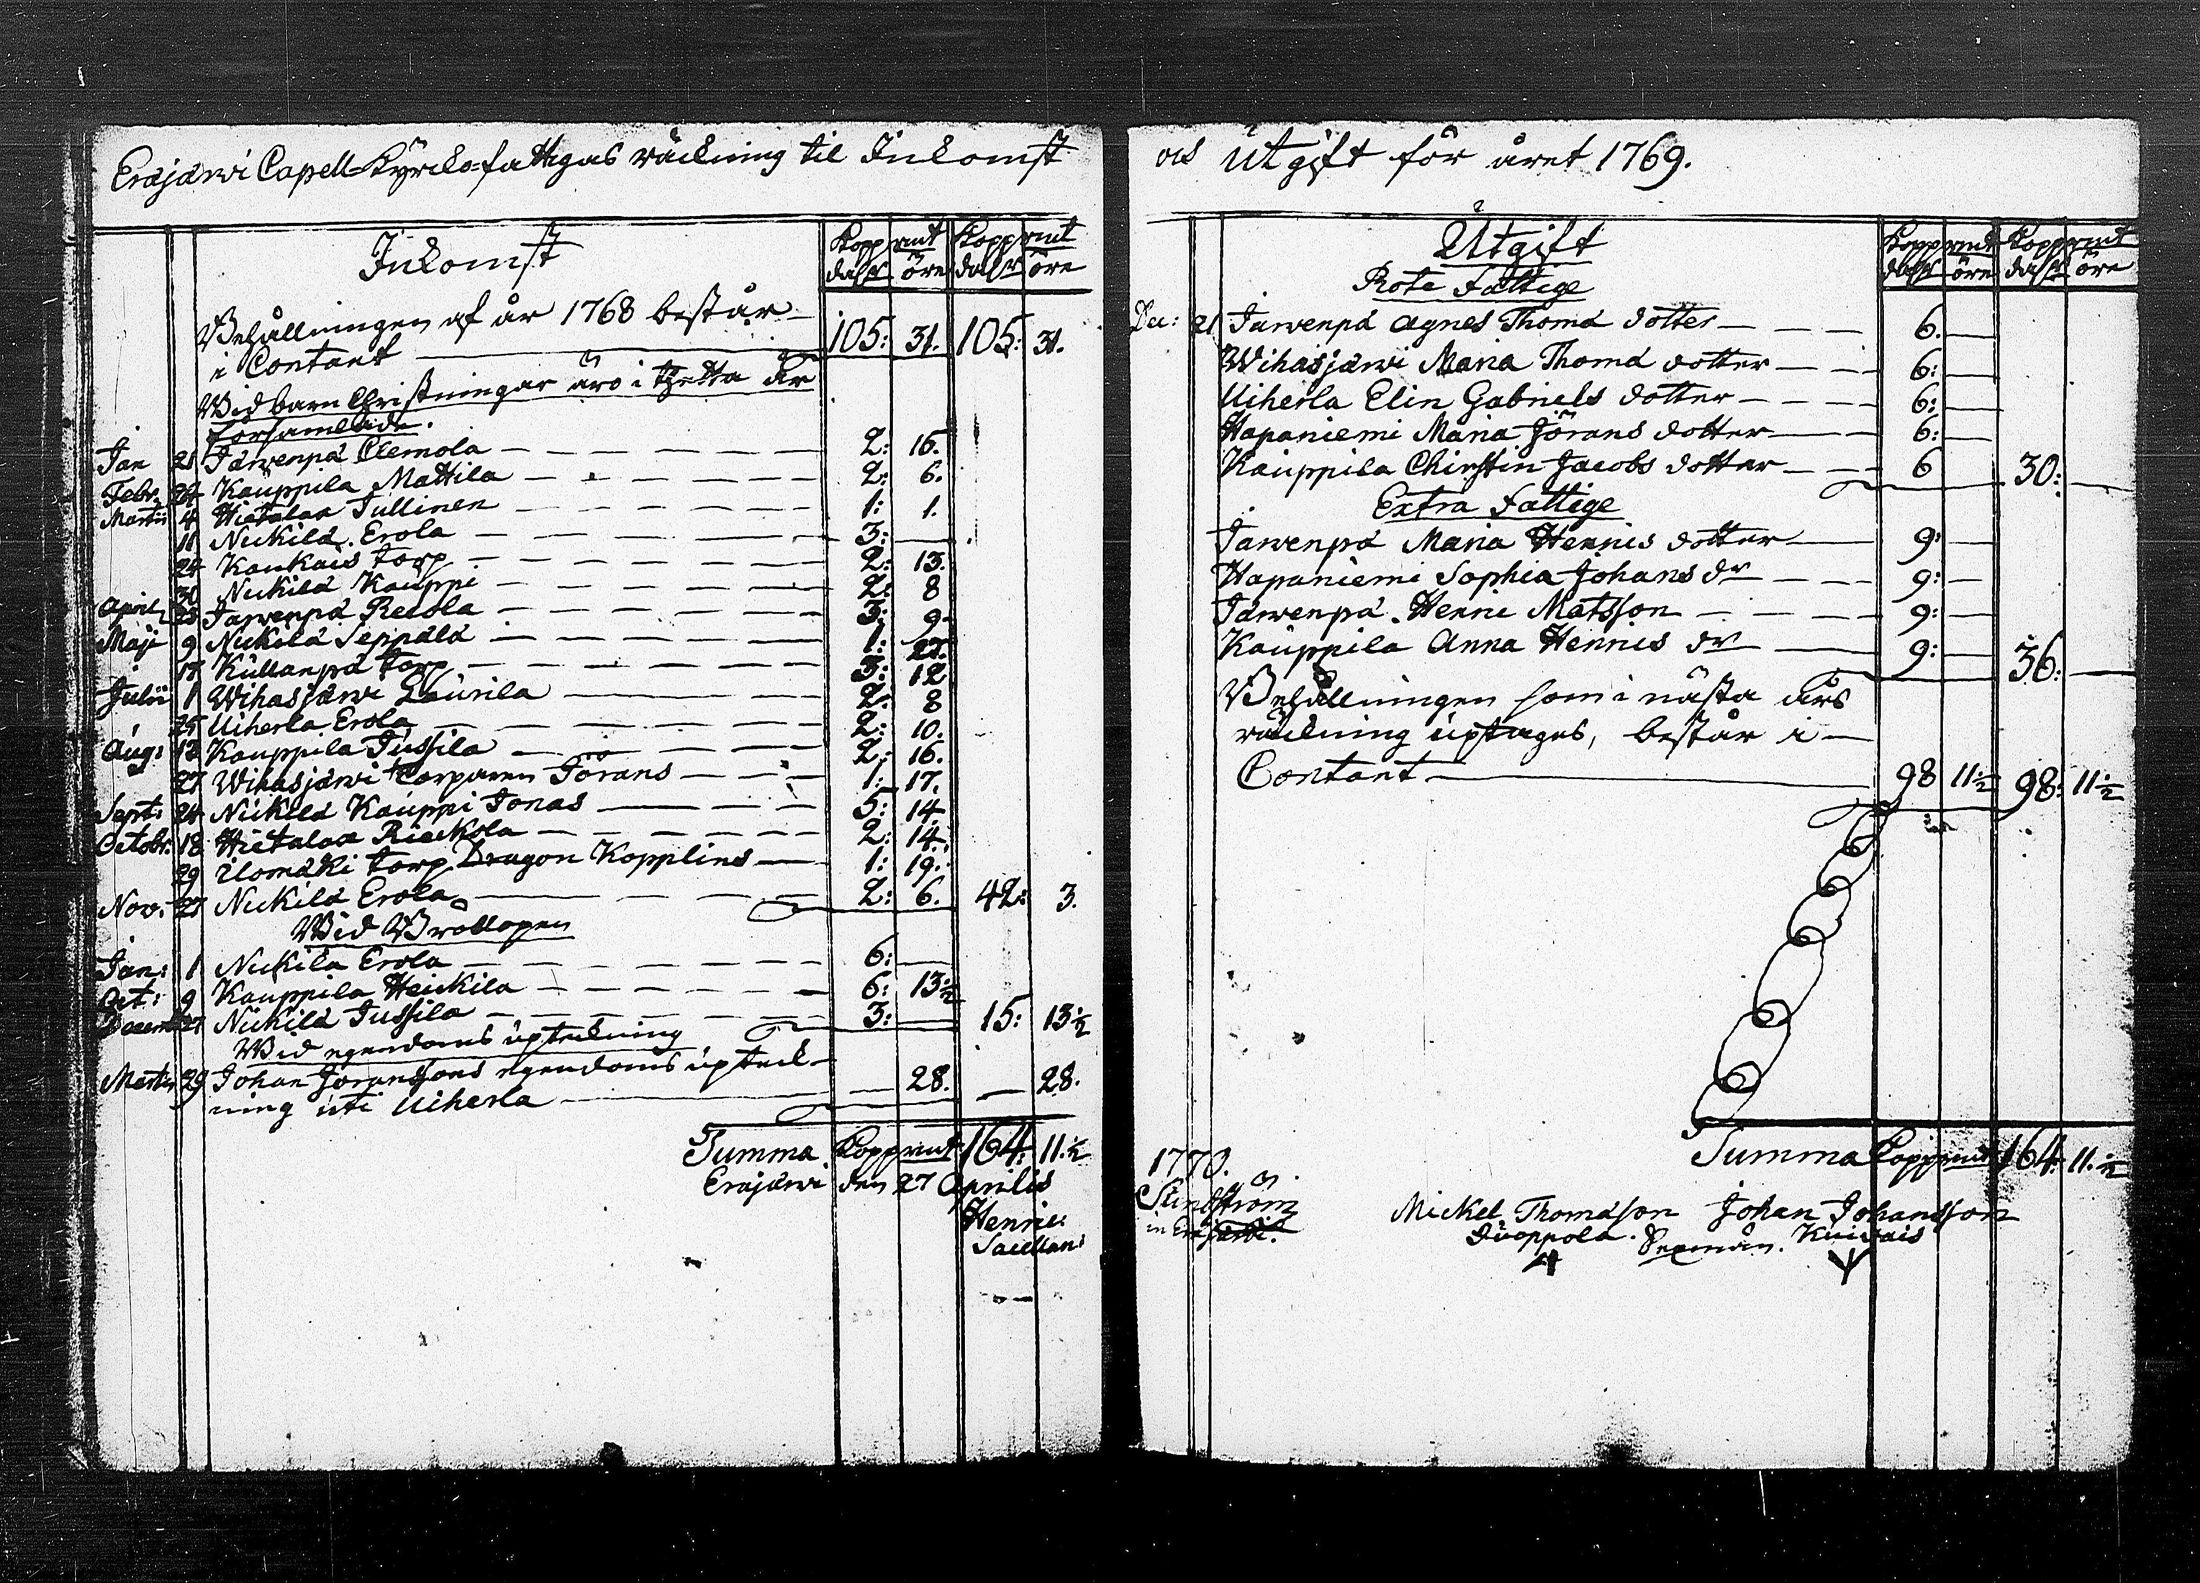 Eräjärwi Capell-Kyrcko-fattigas räckning til Inkomst
Inkomst
Kopp rmt Kopp rmt
dalr öre dalr öre
Behållningen af år 1768 består
i Contant 105: 31. 105: 31.
Wid barn Christningar äro i thetta år
församlade.
Jan 21 Järwenpä Clemola 2: 16.
Febr. 24 Kauppila Mattila 2: 6.
Martii 4 Hietalax Tullinen 1: 1.
11 Nickilä Erola 3:
24 Kaukais torp 2: 13.
30 Nickilä Kauppi 2: 8
April 23 Jarwenpä Recola 3: 9
Maji 9 Nickilä Seppälä 1: 22.
17 Kullanpä torp 3: 12
Julii 1 Wihasjärwi Laurila 2: 8
25 Uiherla Erola 2: 10.
Aug: 13 Kauppila Jussila 2: 16.
27 Wihasjärwi torparen Jörans 1: 17.
Sept: 24 Nickilä Kauppi Jonas 5: 14.
Octobr: 18 Hietalax Rieckola 2: 14.
29 Ilomäki torp Dragon Kopplins 1: 19.
Nov: 27 Nickilä Erola 2: 6. 42: 3.
Wid Bröllopen
Jan: 1 Nickilä Erola 6:
Oct: 9 Kauppila Heickila 6: 13 1/2
Decemb 27 Nickilä Jussila 3: 15: 13 1/2
Wid egendoms uptekning
Martii 29 Johan Joranssons egendoms upteck-
ning uti Uiherla 28. 28.
Summa Kopp rmt 164: 11 1/2
Eräjärwi den 27 Aprilis
Henric
Sacellan:
och Utgift för året 1769.
Utgift
Kopp rmt Kopp rmt
dalr öre dalr öre
Rote Fattige
Dec: 21 Jarwenpä Agnes Thomä dotter 6.
Wihasjärwi Maria Thomä dotter 6:
Uiherla Elin Gabriels dotter 6:
Hapaniemi Maria Jörans dotter 6:
Kauppila Chirstin Jacobs dotter 6 30:
Extra Fattige
Jarwenpä Maria Hennis dotter 9:
Hapaniemi Sophia Johans dr 9:
Järwenpä Henric Matsson 9:
Kauppila Anna Hennis dr 9: 36:
Behållningen som i nästa års
räckning uptages, består i
Contant 98 11 1/2 98: 11 1/2
Summa Kopp rmt 164: 11 1/2
1770.
in Eräjärwi.
Mickel Thomasson Johan Johansson
Sexman.